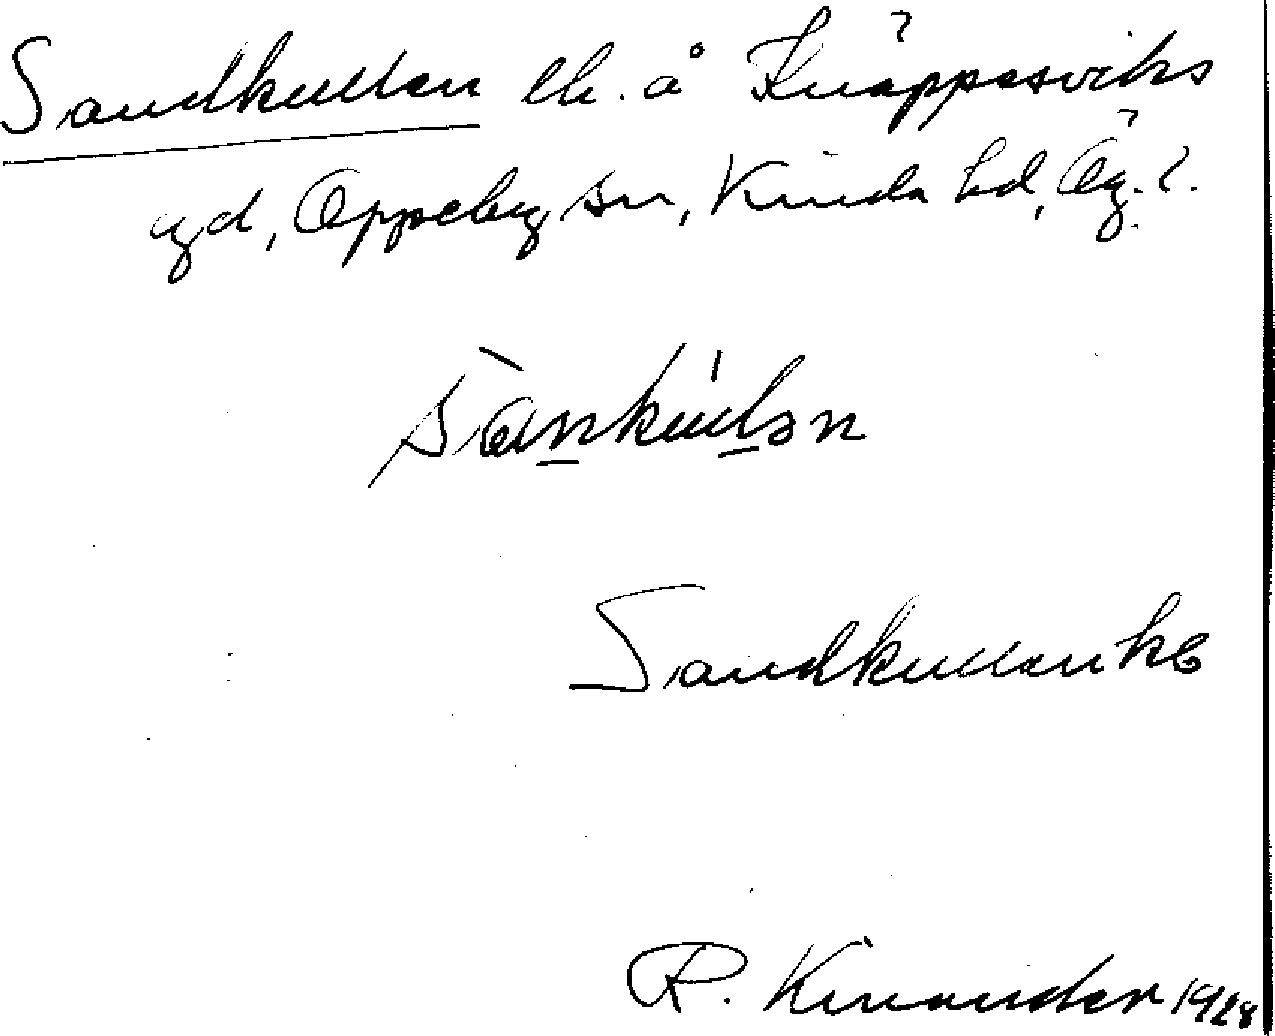 Sandkullen lh. å Knäppasviks
gd, Oppeby sn, Kinda hd, Ög. l.
sànkúlən
Sandkullen kb
R. Kinander 1928